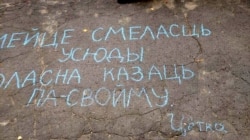 МЕЙЦЕ СМЕЛАСЦЬ
УСЮДЫ
ОЛАСНА КАЗАЦЬ
ПА-СВОЙМУ.
Цётка